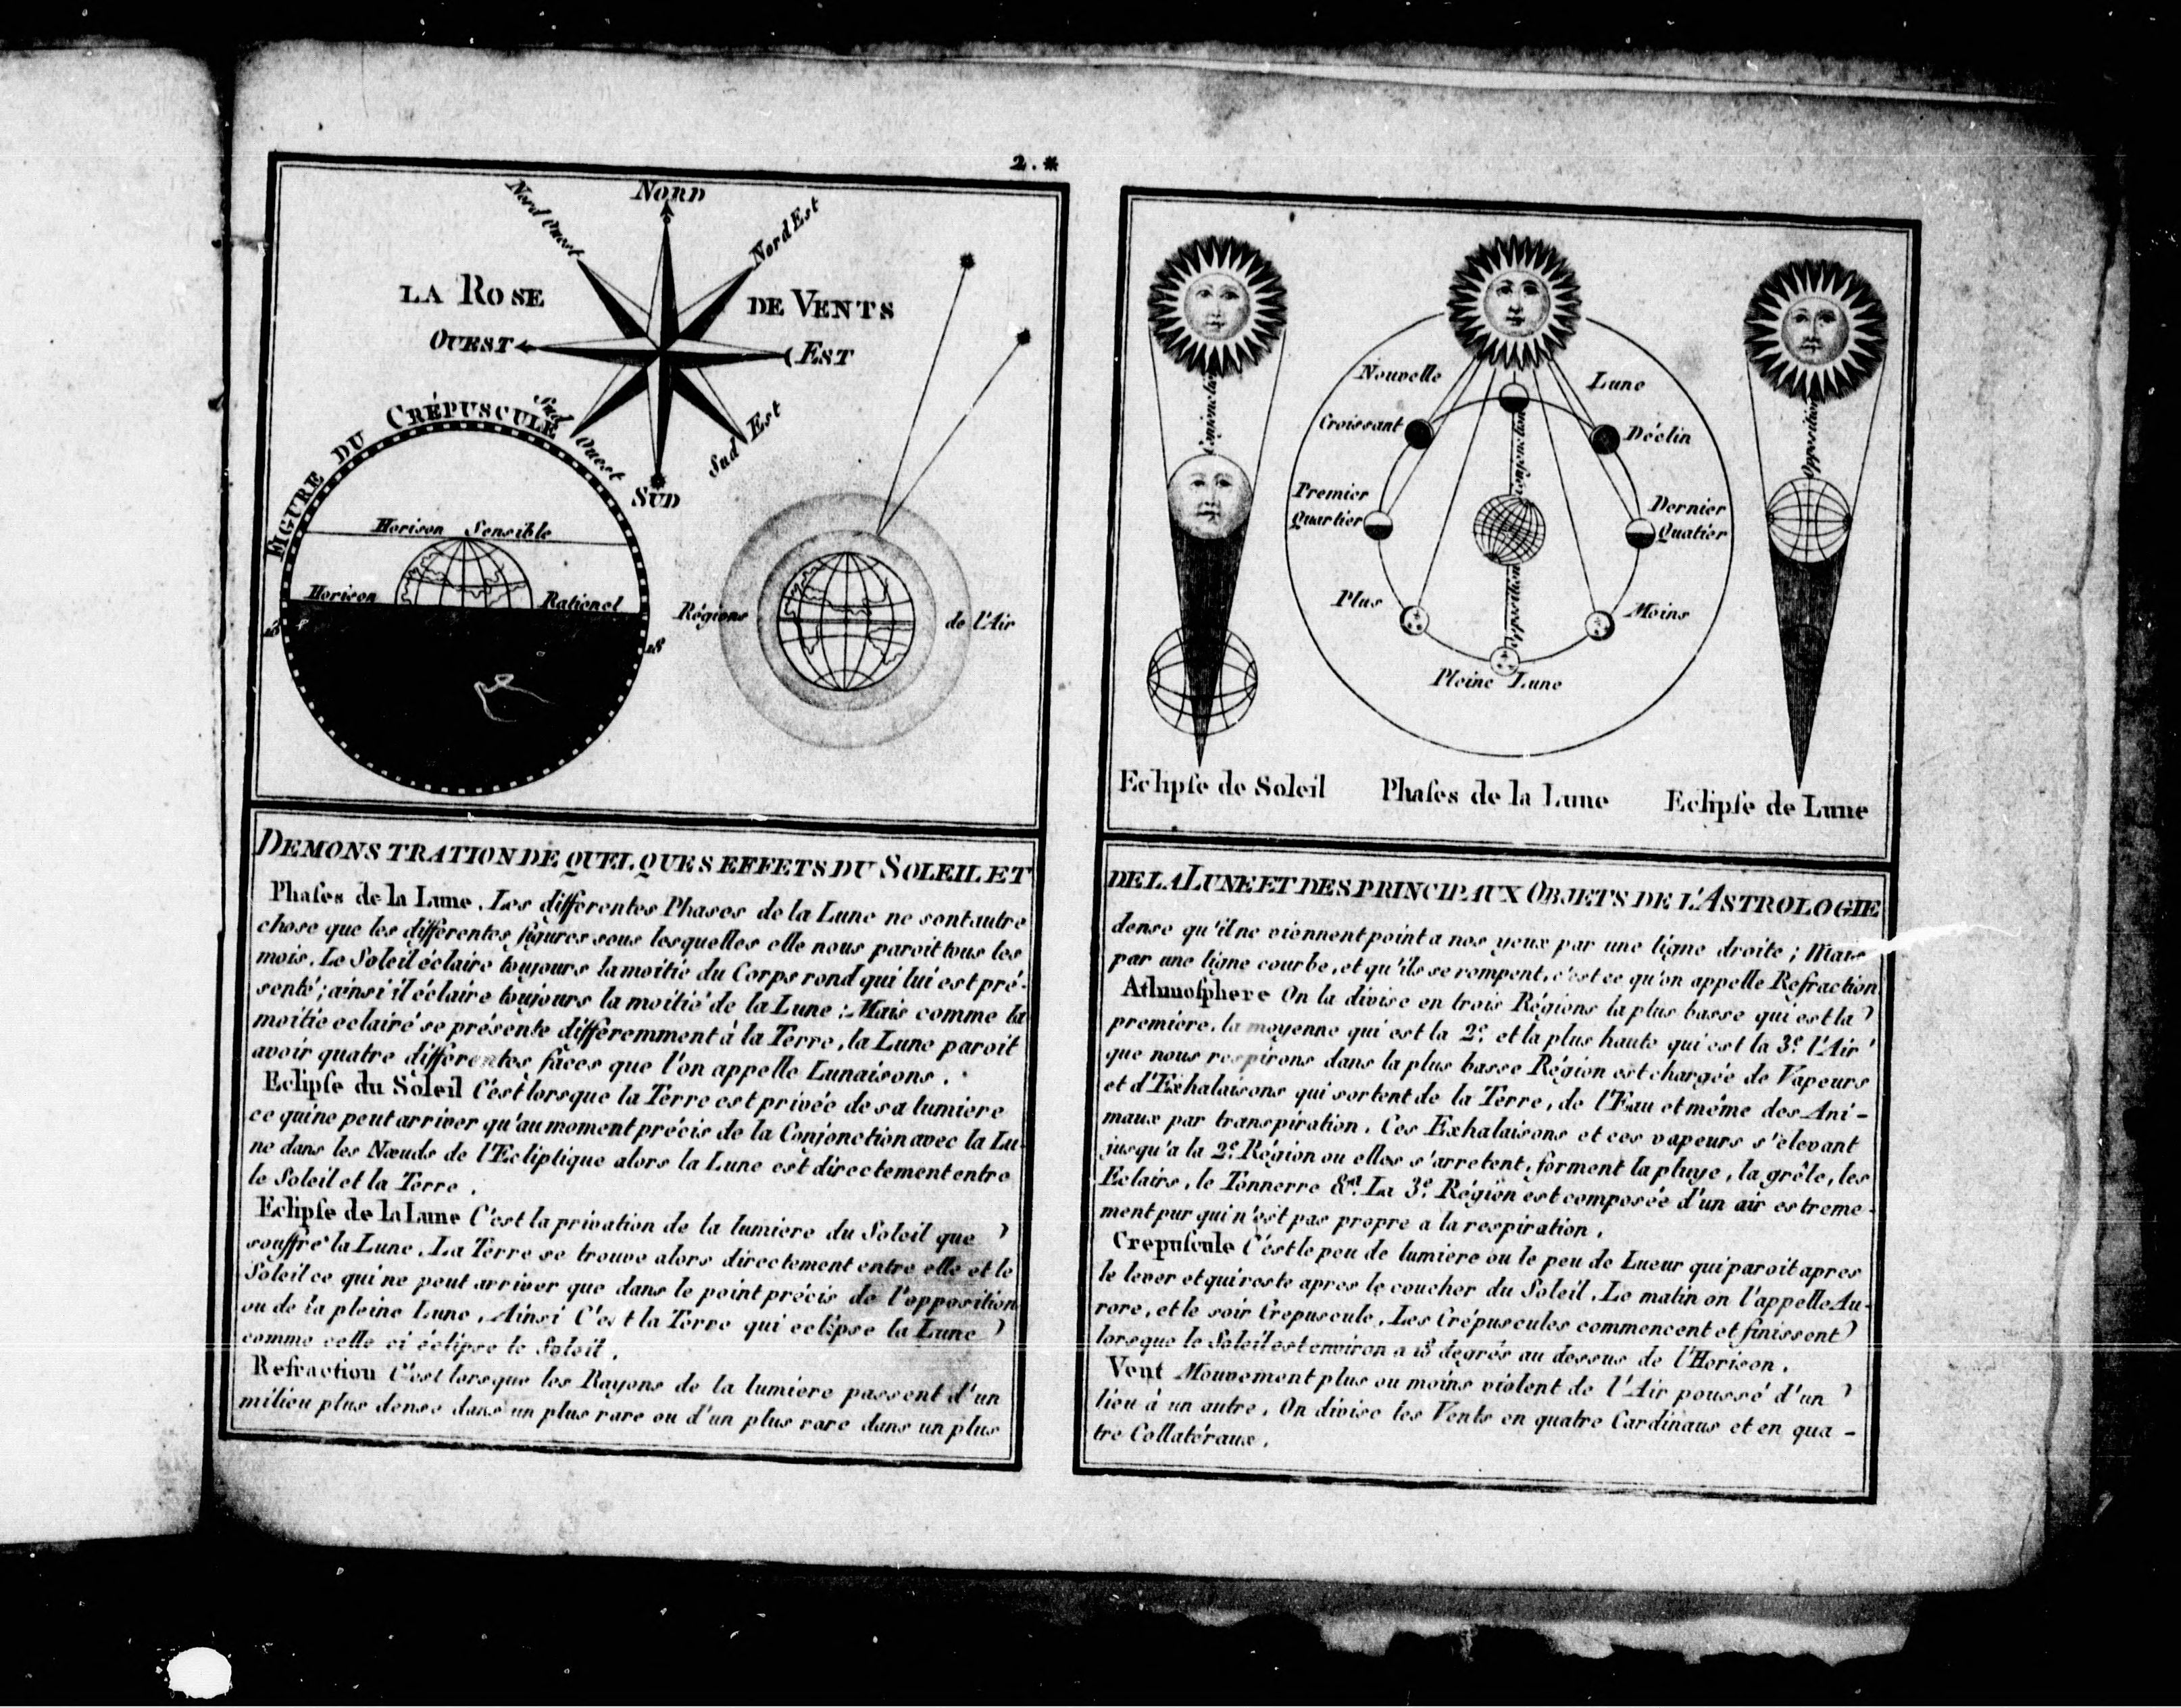 2.*
NORD
Nord Ouest
Nord Est
LA ROSE
DE VENTS
OUEST
EST
Sud Ouest
Sud Est
SUD
FIGURE DU CRÉPUSCULE
Horison Sensible
Horison Rationel
18
18
Régions
de l'Air
DEMONSTRATION DE QUELQUES EFFETS DU SOLEIL ET
Phaſes de la Lune. Les differentes Phases de la Lune ne sont autre
chose que les différentes figures sous lesquelles elle nous paroit tous les
mois. Le Soleil éclaire toujours la moitié du Corps rond qui lui est pré-
senté; ainsi il éclaire toujours la moitié de la Lune: Mais comme la
moitie eclairé se présente différemment à la Terre, la Lune paroit
avoir quatre différentes fâces que l'on appelle Lunaisons.
Eclipſe du Soleil C'est lorsque la Terre est privée de sa lumiere
ce qui ne peut arriver qu'au moment précis de la Conjonction avec la Lu-
ne dans les Nœuds de l'Ecliptique alors la Lune est directement entre
le Soleil et la Terre.
Eclipſe de la Lune C'est la privation de la lumiere du Soleil que
souffre la Lune. La Terre se trouve alors directement entre elle et le
Soleil ce qui ne peut arriver que dans le point précis de l'opposition
ou de la pleine Lune. Ainsi C'est la Terre qui eclipse la Lune
comme celle ci éclipse le Soleil.
Refraction C'est lorsque les Rayons de la lumiere passent d'un
milieu plus dense dans un plus rare ou d'un plus rare dans un plus
Conjonction
Nouvelle
Lune
Croissant
Déclin
Conjonction
Premier
Quartier
Dernier
Quatier
Plus
Moins
Opposition
Pleine Lune
Opposition
Eclipſe de Soleil
Phaſes de la Lune
Eclipſe de Lune
DE LA LUNE ET DES PRINCIPAUX OBJETS DE L'ASTROLOGIE
dense qu'il ne viennent point a nos yeux par une ligne droite; Mais
par une ligne courbe, et qu'ils se rompent, c'est ce qu'on appelle Refraction
Athmoſphere On la divise en trois Régions la plus basse qui est la
premiere, la moyenne qui est la 2.e et la plus haute qui est la 3.e l'Air
que nous respirons dans la plus basse Région est chargée de Vapeurs
et d'Exhalaisons qui sortent de la Terre, de l'Eau et même des Ani-
maux par transpiration. Ces Exhalaisons et ces vapeurs s'elevant
jusqu'a la 2.e Région ou elles s'arretent, forment la pluye, la grêle, les
Eclairs, le Tonnerre &a. La 3.e Région est composée d'un air estreme-
ment pur qui n'est pas propre a la respiration.
Crepuſcule C'est le peu de lumiere ou le peu de Lueur qui paroit apres
le lever et qui reste apres le coucher du Soleil. Le matin on l'appelle Au-
rore, et le soir Crepuscule. Les Crépuscules commencent et finissent
lorsque le Soleil est environ a 18 degrés au dessus de l'Horison.
Vent Mouvement plus ou moins violent de l'Air poussé d'un
lieu à un autre. On divise les Vents en quatre Cardinaus et en qua-
tre Collatéraux.